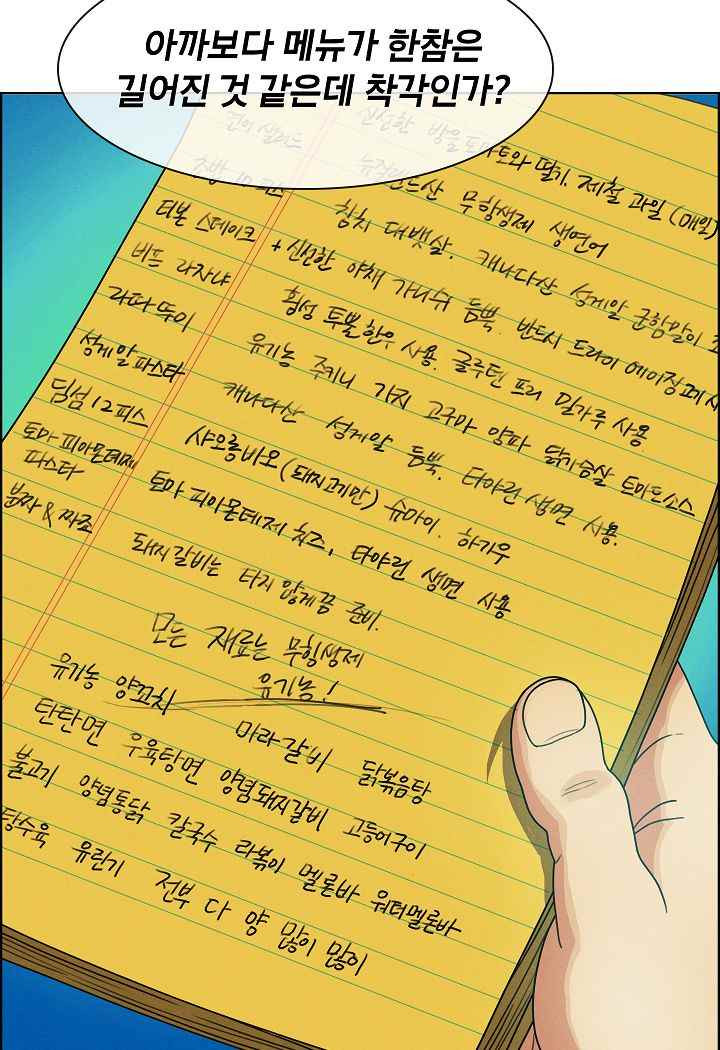 아까보다 메뉴가 한참은
길어진 것 같은데 착각인가?
신선한 방울토마토와 딸기. 제철 과일 (매일)
무항생제 생연어
참치 대뱃살. 캐나다산 성게알 군함말이
티본 스테이크
+ 신선한 야채 가니쉬 듬뿍. 반드시 드라이 에이징
비프 라자냐
횡성 투뿔 한우 사용. 글루텐 프리 밀가루 사용
라따뚜이
유기농 주키니 가지 고구마 양파 닭가슴살 토마토소스
성게알 파스타
캐나다산 성게알 듬뿍. 타야린 생면 사용.
딤섬 12피스
샤오롱바오 (돼지고기만) 슈마이. 하가우
토마 피아몬테제
파스타
토마 피아몬테제 치즈, 타야린 생면 사용
분짜 & 짜조
돼지갈비는 타지 않게끔 준비.
모든 재료는 무항생제
유기농!
유기농 양꼬치 마라갈비 닭볶음탕
탄탄면 우육탕면 양념돼지갈비 고등어구이
불고기 양념통닭 칼국수 라볶이 멜론바 워터멜론바
탕수육 유린기 전부 다 양 많이 많이